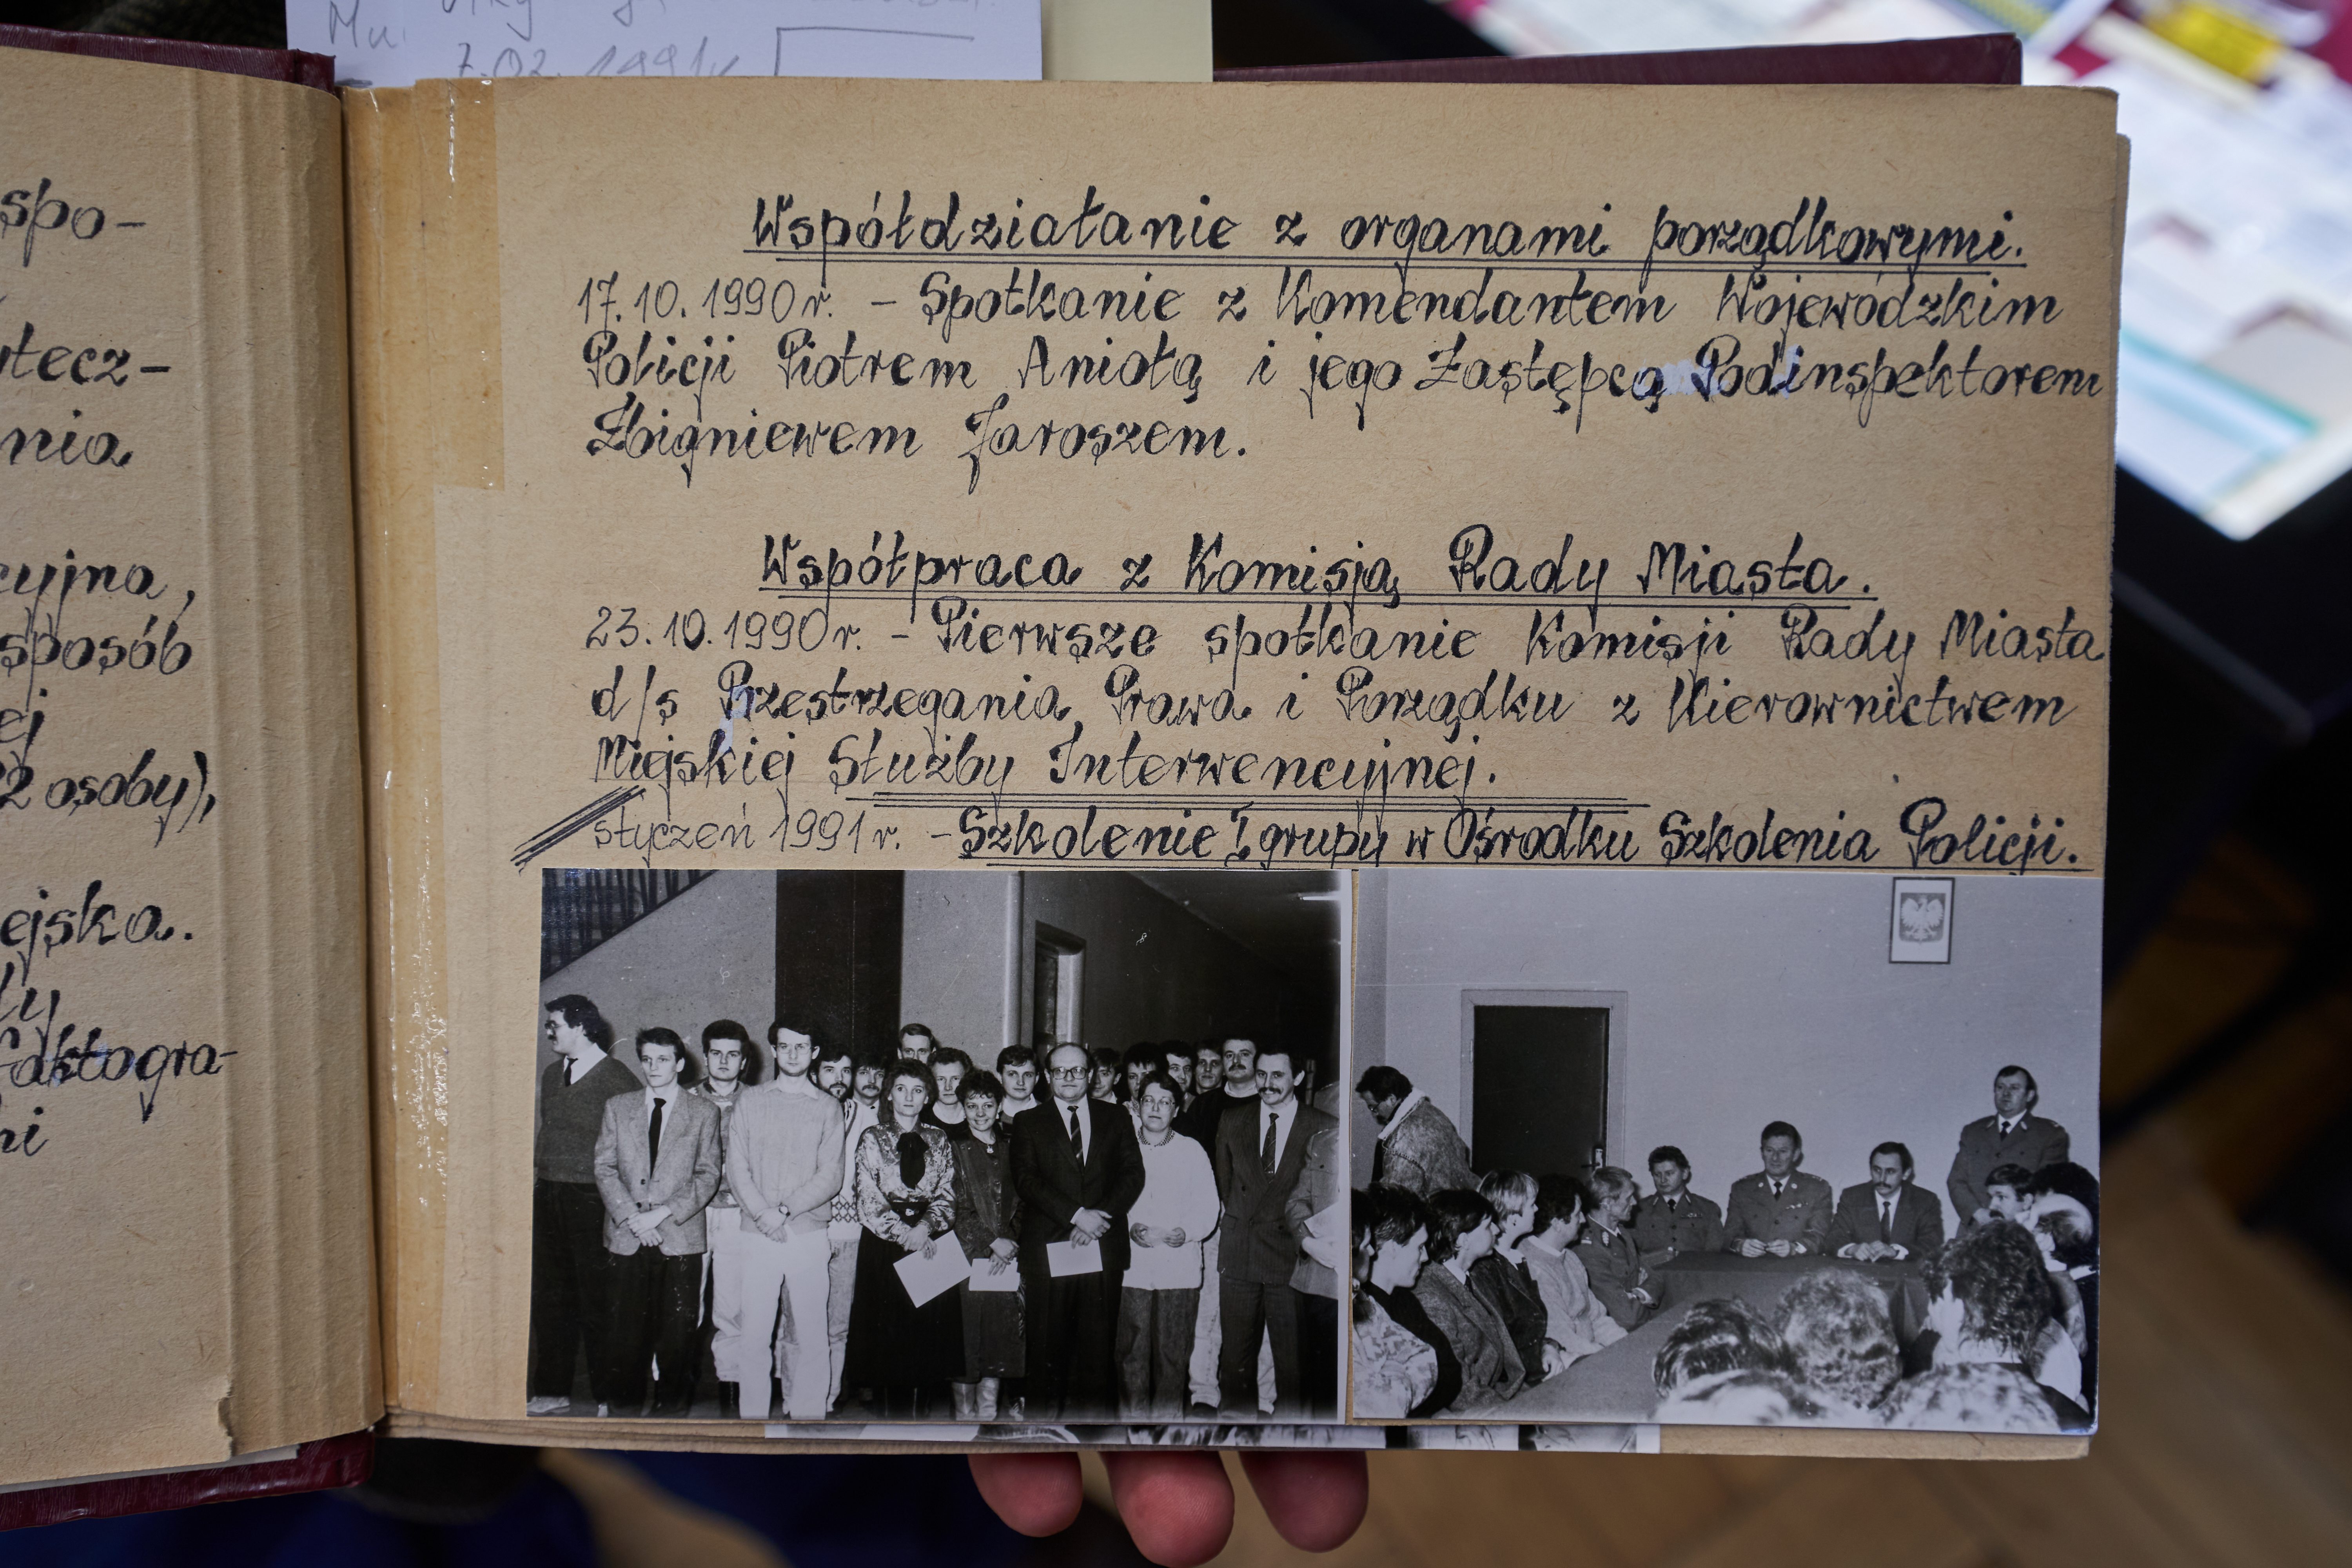 7.02.1991r
spo-
utecz-
nia
cyjna,
sposób
ej
2 osoby),
ejska.
ły
faktogra-
ni
Współdziałanie z organami porządkowymi.
17.10.1990r. - Spotkanie z Komendantem Wojewódzkim
Policji Piotrem Aniołą i jego Zastępcą Podinspektorem
Zbigniewem Jaroszem.
Współpraca z Komisją Rady Miasta.
23.10.1990r. - Pierwsze spotkanie Komisji Rady Miasta
d/s Przestrzegania Prawa i Porządku z Kierownictwem
Miejskiej Służby Interwencyjnej.
styczeń 1991r. - Szkolenie I grupy w Ośrodku Szkolenia Policji.